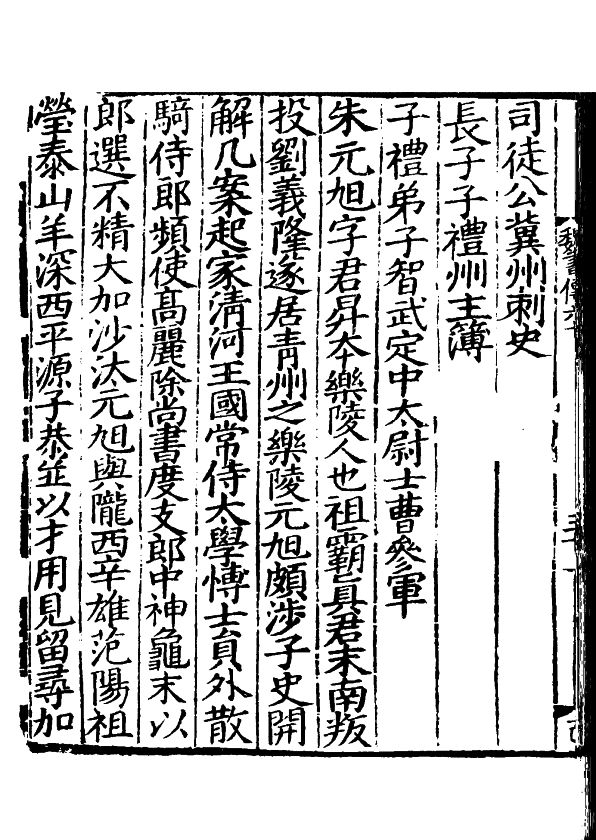 司徒公冀州刺史
長子子禮州主簿
子禮弟子智武定中太尉士曹參軍
朱元旭字君昇本樂陵人也祖霸眞君末南叛
投劉義隆遂居青州之樂陵元旭頗涉子史開
解几案起家清河王國常侍太學博士員外散
騎侍郎頻使高麗除尚書度支郎中神龜末以
郎選不精大加沙汰元旭與隴西辛雄范陽祖
瑩泰山羊深西平源子恭並以才用見留尋加